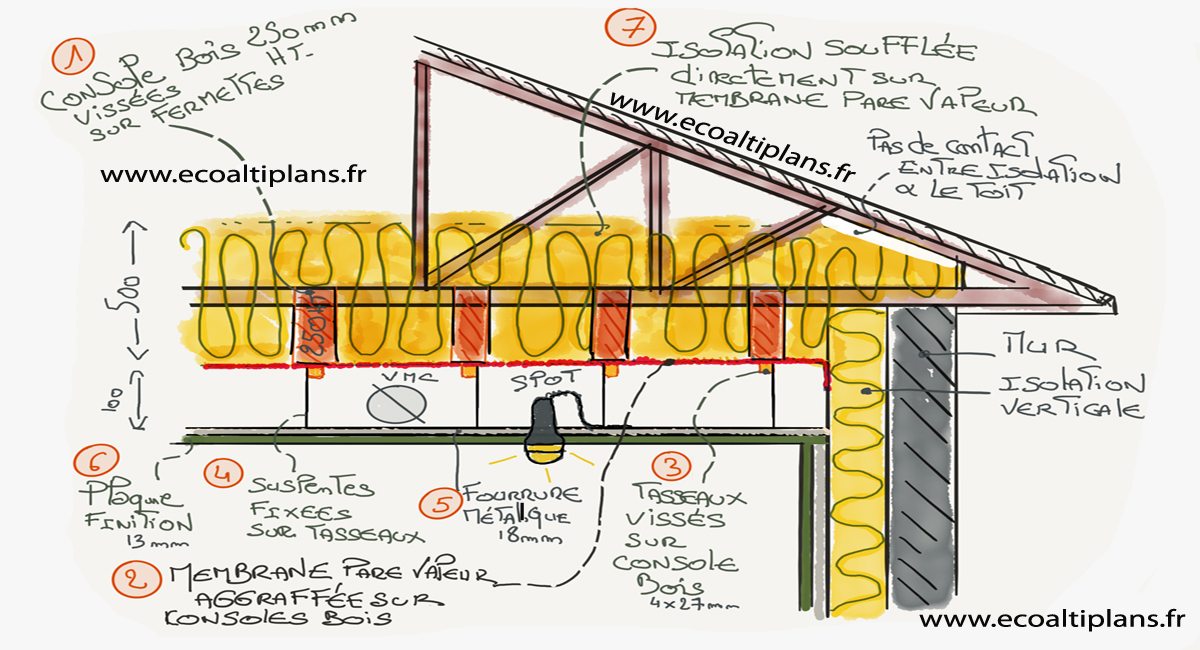 1
CONSOLE BOIS 250mm
HT-
VISSÉES
SUR FERMETTES
www.ecoaltiplans.fr
7
ISOTATION SOUFFLÉE
DIRECTEMENT SUR
MEMBRANE PARE VAPEUR
www.ecoaltiplans.fr
PAS de CONTACT
ENTRE ISOLATION
& LE TOIT
500
250HT
100
VMC
SPOT
MUR
ISOLATION
VERTICALE
6
PLAQUE
FINITION
13mm
4
SUSPENTES
FIXÉES
SUR TASSEAUX
5
FOURRURE
MÉTALLIQUE
18mm
3
TASSEAUX
VISSÉS
SUR
CONSOLE
BOIS
4x27mm
2
MEMBRANE PARE VAPEUR
AGGRAFFÉE SUR
CONSOLES BOIS
www.ecoaltiplans.fr